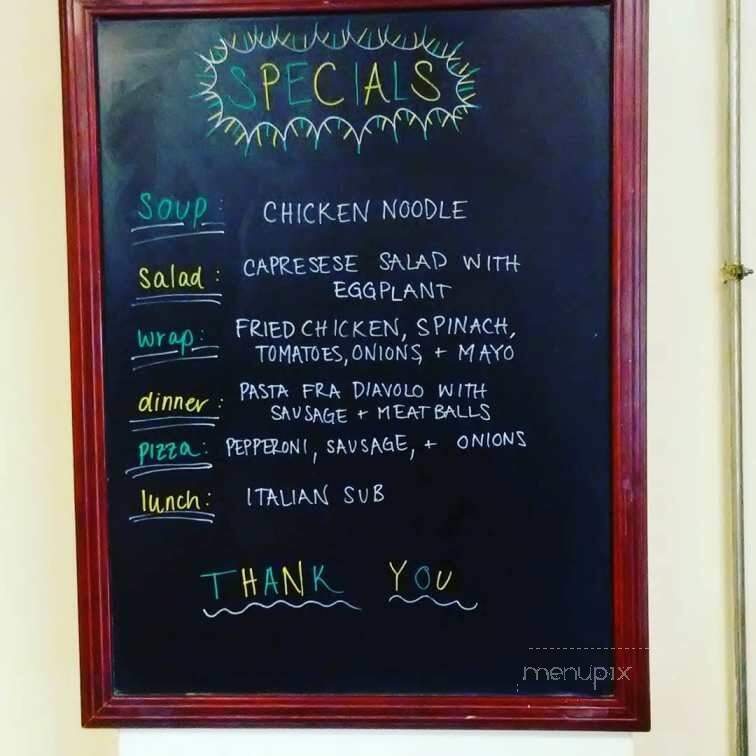 SPECIALS
Soup: CHICKEN NOODLE
Salad: CAPRESESE SALAD WITH
EGGPLANT
wrap: FRIED CHICKEN, SPINACH,
TOMATOES, ONIONS, + MAYO
dinner: PASTA FRA DIAVOLO WITH
SAUSAGE + MEATBALLS
pizza: PEPPERONI, SAUSAGE, + ONIONS
lunch: ITALIAN SUB
THANK YOU
menupix